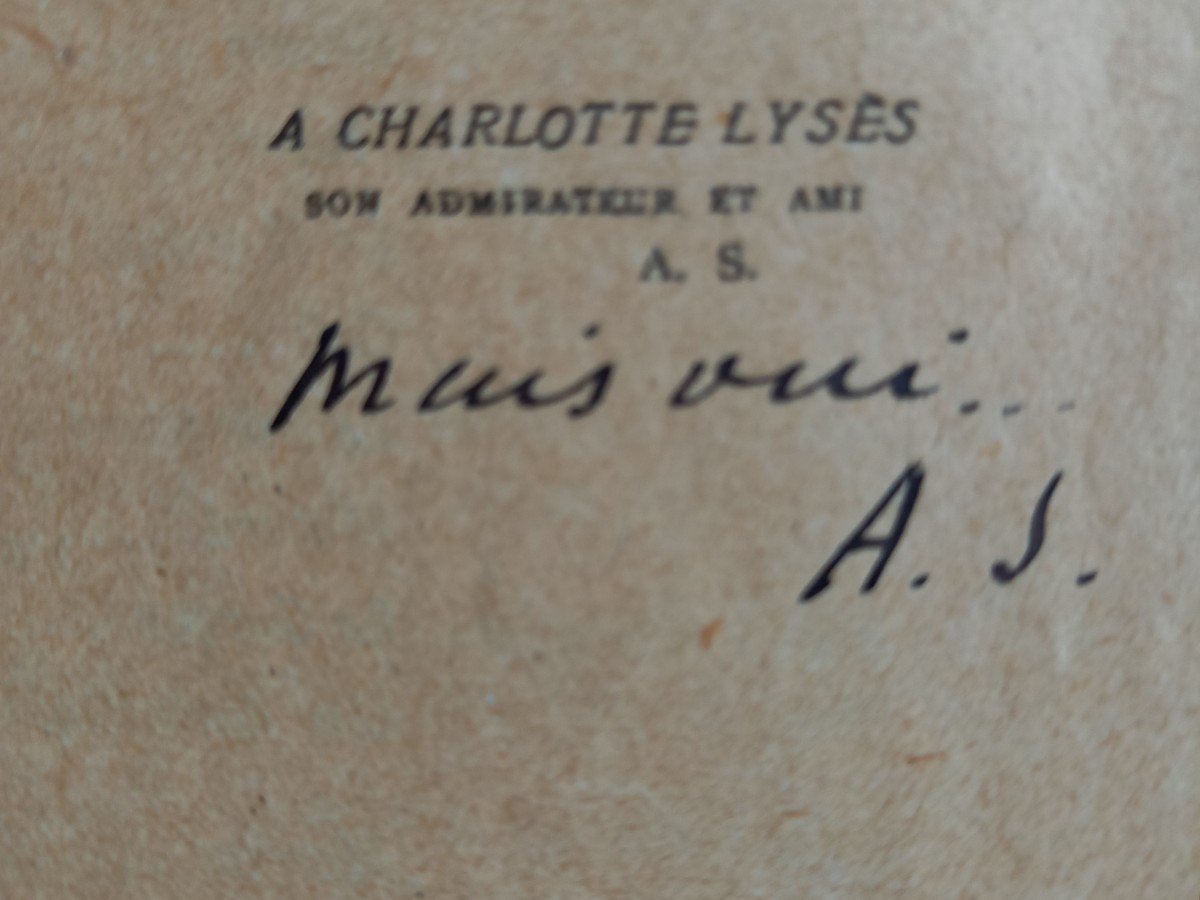 A CHARLOTTE LYSÈS
SON ADMIRATEUR ET AMI
A. S.
Mais oui...
A. S.